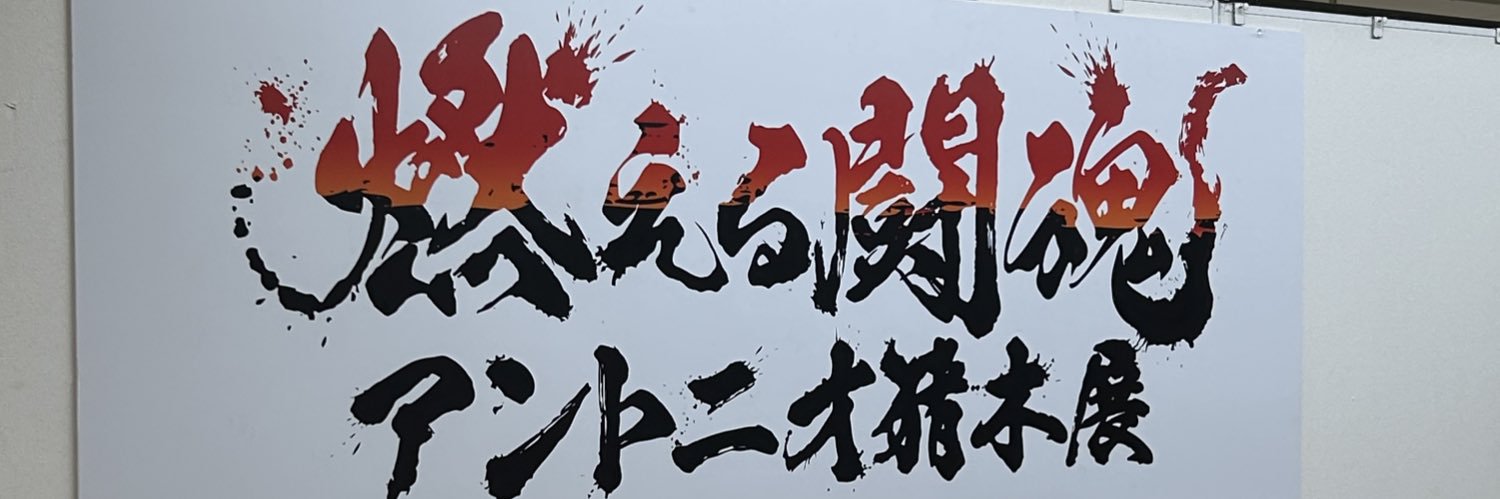 燃える闘魂
アントニオ猪木展